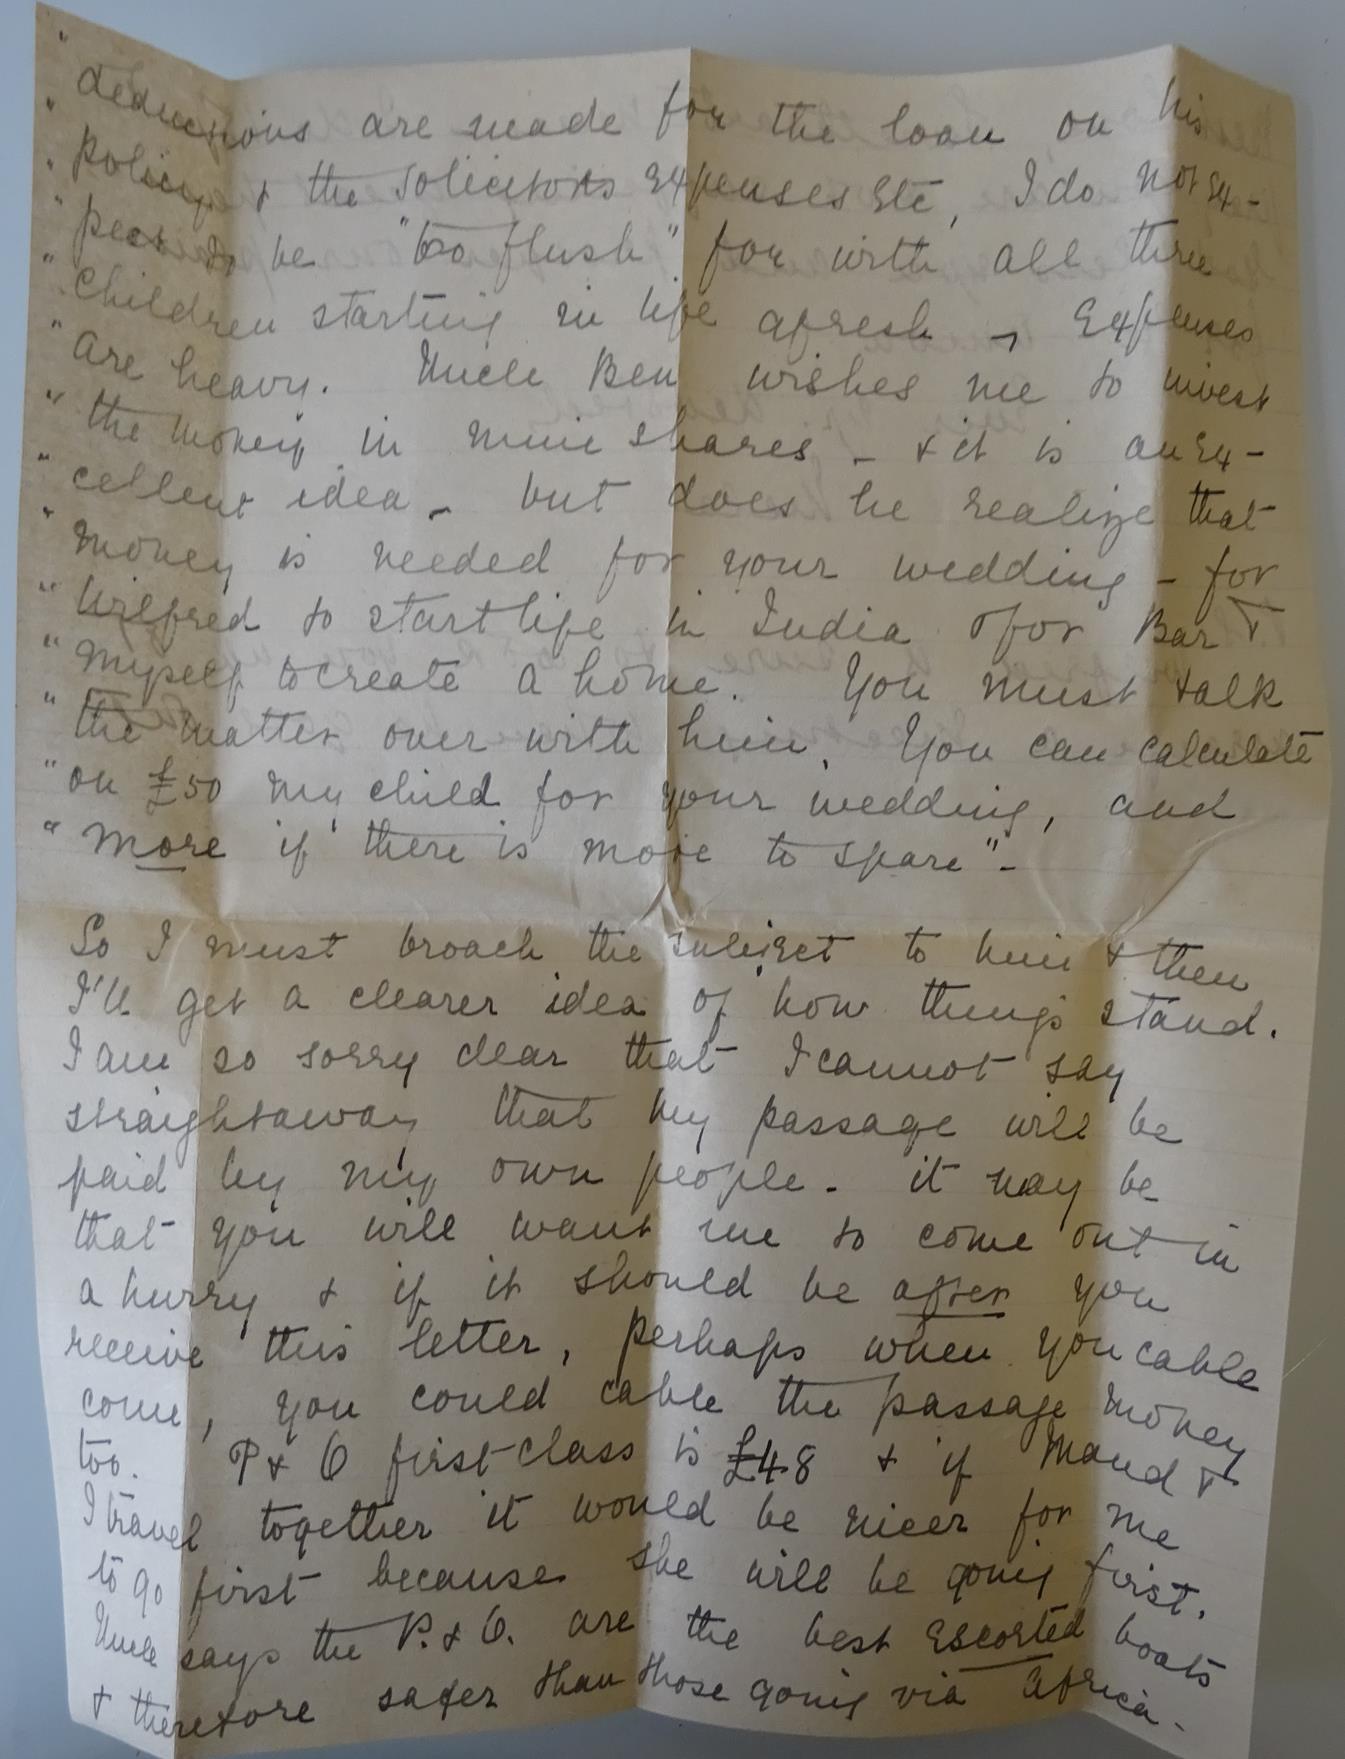 " deductions are made for the loan on his
" policy & the solicitors expenses etc, I do not ex-
" pect to be "too flush" for with all three
" children starting in life afresh, expenses
" are heavy. Uncle Ben wishes me to invest
" the money in mine shares - & it is an ex-
" cellent idea - but does he realize that
" money is needed for your wedding - for
" Wilfred to start life in India & for Bar &
" myself to create a home. You must talk
" the matter over with him. You can calculate
" on £50 my child for your wedding, and
" more if there is more to spare" -
So I must broach the subject to him & then
I'll get a clearer idea of how things stand.
I am so sorry dear that I cannot say
straightaway that my passage will be
paid by my own people. it may be
that you will want me to come out in
a hurry & if it should be after you
receive this letter, perhaps when you cable
come, you could cable the passage money
too. P & O first class is £48 & if Maud &
I travel together it would be nicer for me
to go first because she will be going first.
Uncle says the P. & O. are the best escorted boats
& therefore safer than those going via Africa.-